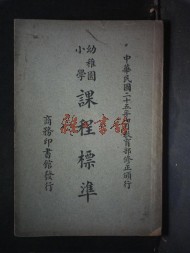 中華民國二十三年 教育部修正頒行
幼稚園
小學
課程標準
商務印書館發行